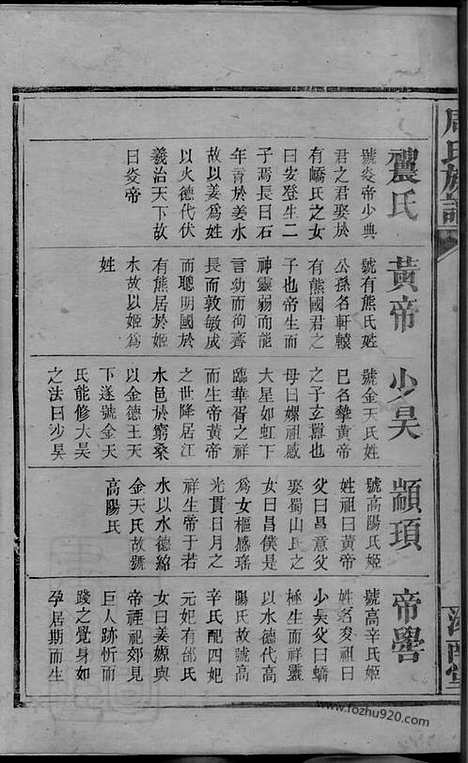 周氏族譜
農氏
號炎帝少典
君之君娶於
有蟜氏之女
曰安登生二
子焉長曰石
年育於姜水
故以姜爲姓
以火德代伏
羲治天下故
曰炎帝
黃帝
號有熊氏姓
公孫名軒轅
有熊國君之
子也帝生而
神靈弱而能
言幼而徇齊
長而敦敏成
而聰明國於
有熊居於姬
水故以姬爲
姓
少昊
號金天氏姓
已名摯黃帝
之子玄囂也
母曰嫘祖感
大星如虹下
臨華胥之祥
而生帝黃帝
之世降居江
水邑於窮桑
以金德王天
下遂號金天
氏能修大昊
之法曰沙昊
顓頊
號高陽氏姬
姓祖曰黃帝
父曰昌意父
娶蜀山氏之
女曰昌僕是
爲女樞感瑤
光貫日月之
祥生帝于若
水以水德紹
金天氏故號
高陽氏
帝嚳
號高辛氏姬
姓名夋祖曰
少昊父曰蟜
極生而祥靈
以水德代高
陽氏故號高
辛氏配四妃
元妃有邰氏
女曰姜嫄與
帝禋祀郊見
巨人跡忻而
踐之覺身如
孕居期而生
www.fozhu920.com